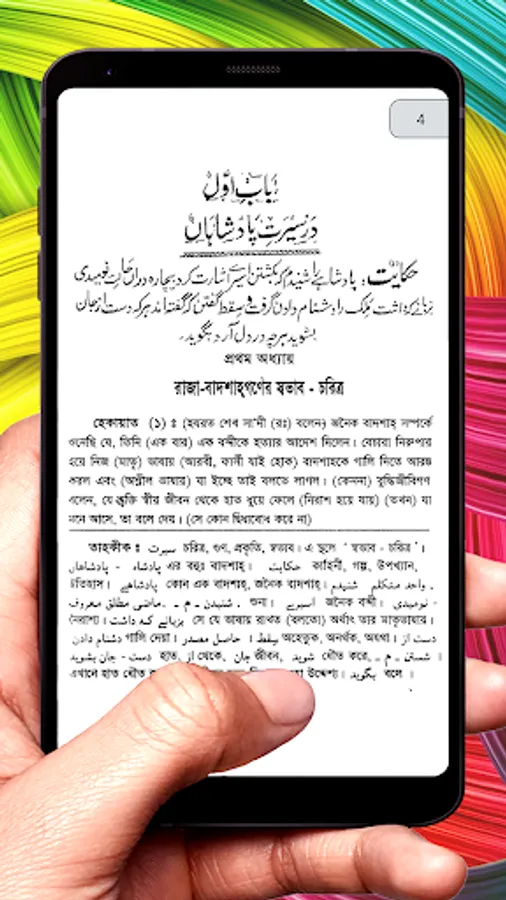 4
باب اوّل
در سیرت پادشاہاں
حکایت: پادشاہے را شنیدم کہ بکشتن اسیرے اشارت کرد بیچارہ دراں حالت نومیدی
بزبانے کہ داشت ملک را دشنام دادن گرفت و سقط گفتن کہ گفتہ اند ہر کہ دست از جان
بشوید ہر چہ در دل آرد بگوید۔
প্রথম অধ্যায়
রাজা-বাদশাহ্গণের স্বভাব - চরিত্র
হেকায়াত (১) ঃ (হযরত শেখ সা'দী (রঃ) বলেন) জনৈক বাদশাহ্ সম্পর্কে
শুনেছি যে, তিনি (এক বার) এক বন্দীকে হত্যার আদেশ দিলেন। বেচারা নিরুপায়
হয়ে নিজ (মাতৃ) ভাষায় (আরবী, ফার্সী যাই হোক) বাদশাহকে গালি দিতে আরম্ভ
করল এবং (অশ্লীল ভাষায়) যা ইচ্ছে তাই বলতে লাগল। (কেননা) বুদ্ধিজীবিগণ
বলেন, যে ব্যক্তি স্বীয় জীবন থেকে হাত ধুয়ে ফেলে (নিরাশ হয়ে যায়) (তখন) যা
মনে আসে, তা বলে দেয়। (সে কোন দ্বিধাবোধ করে না)
তাহকীক ঃ سیرت চরিত্র, গুণ, প্রকৃতি, স্বভাব। এ স্থলে ' স্বভাব - চরিত্র '।
پادشاهاں - پادشاه এর বহুঃ বাদশাহ্। حکایت কাহিনী, গল্প, উপখ্যান,
ইতিহাস। پادشاهے কোন এক বাদশাহ্, জনৈক বাদশাহ্। شنیدم - واحد متکلم
ماضی مطلق معروف - شنیدن - م - শুনা। اسیرے জনৈক বন্দী। نومیدی -
নৈরাশ্য। بزبانے که داشت সে যে ভাষায় রাখত (বলতো) অর্থাৎ তার মাতৃভাষায়।
دشنام دادن গালি দেয়া। حاصل مصدر - سقط অহেতুক, অনর্থক, অযথা। دست از
جان بشوید - دست হাত, از থেকে, جان জীবন, شوید ধৌত করে, م - شستن -
এখানে হাত ধৌত করা উদ্দেশ্য। بگوید বলে ।